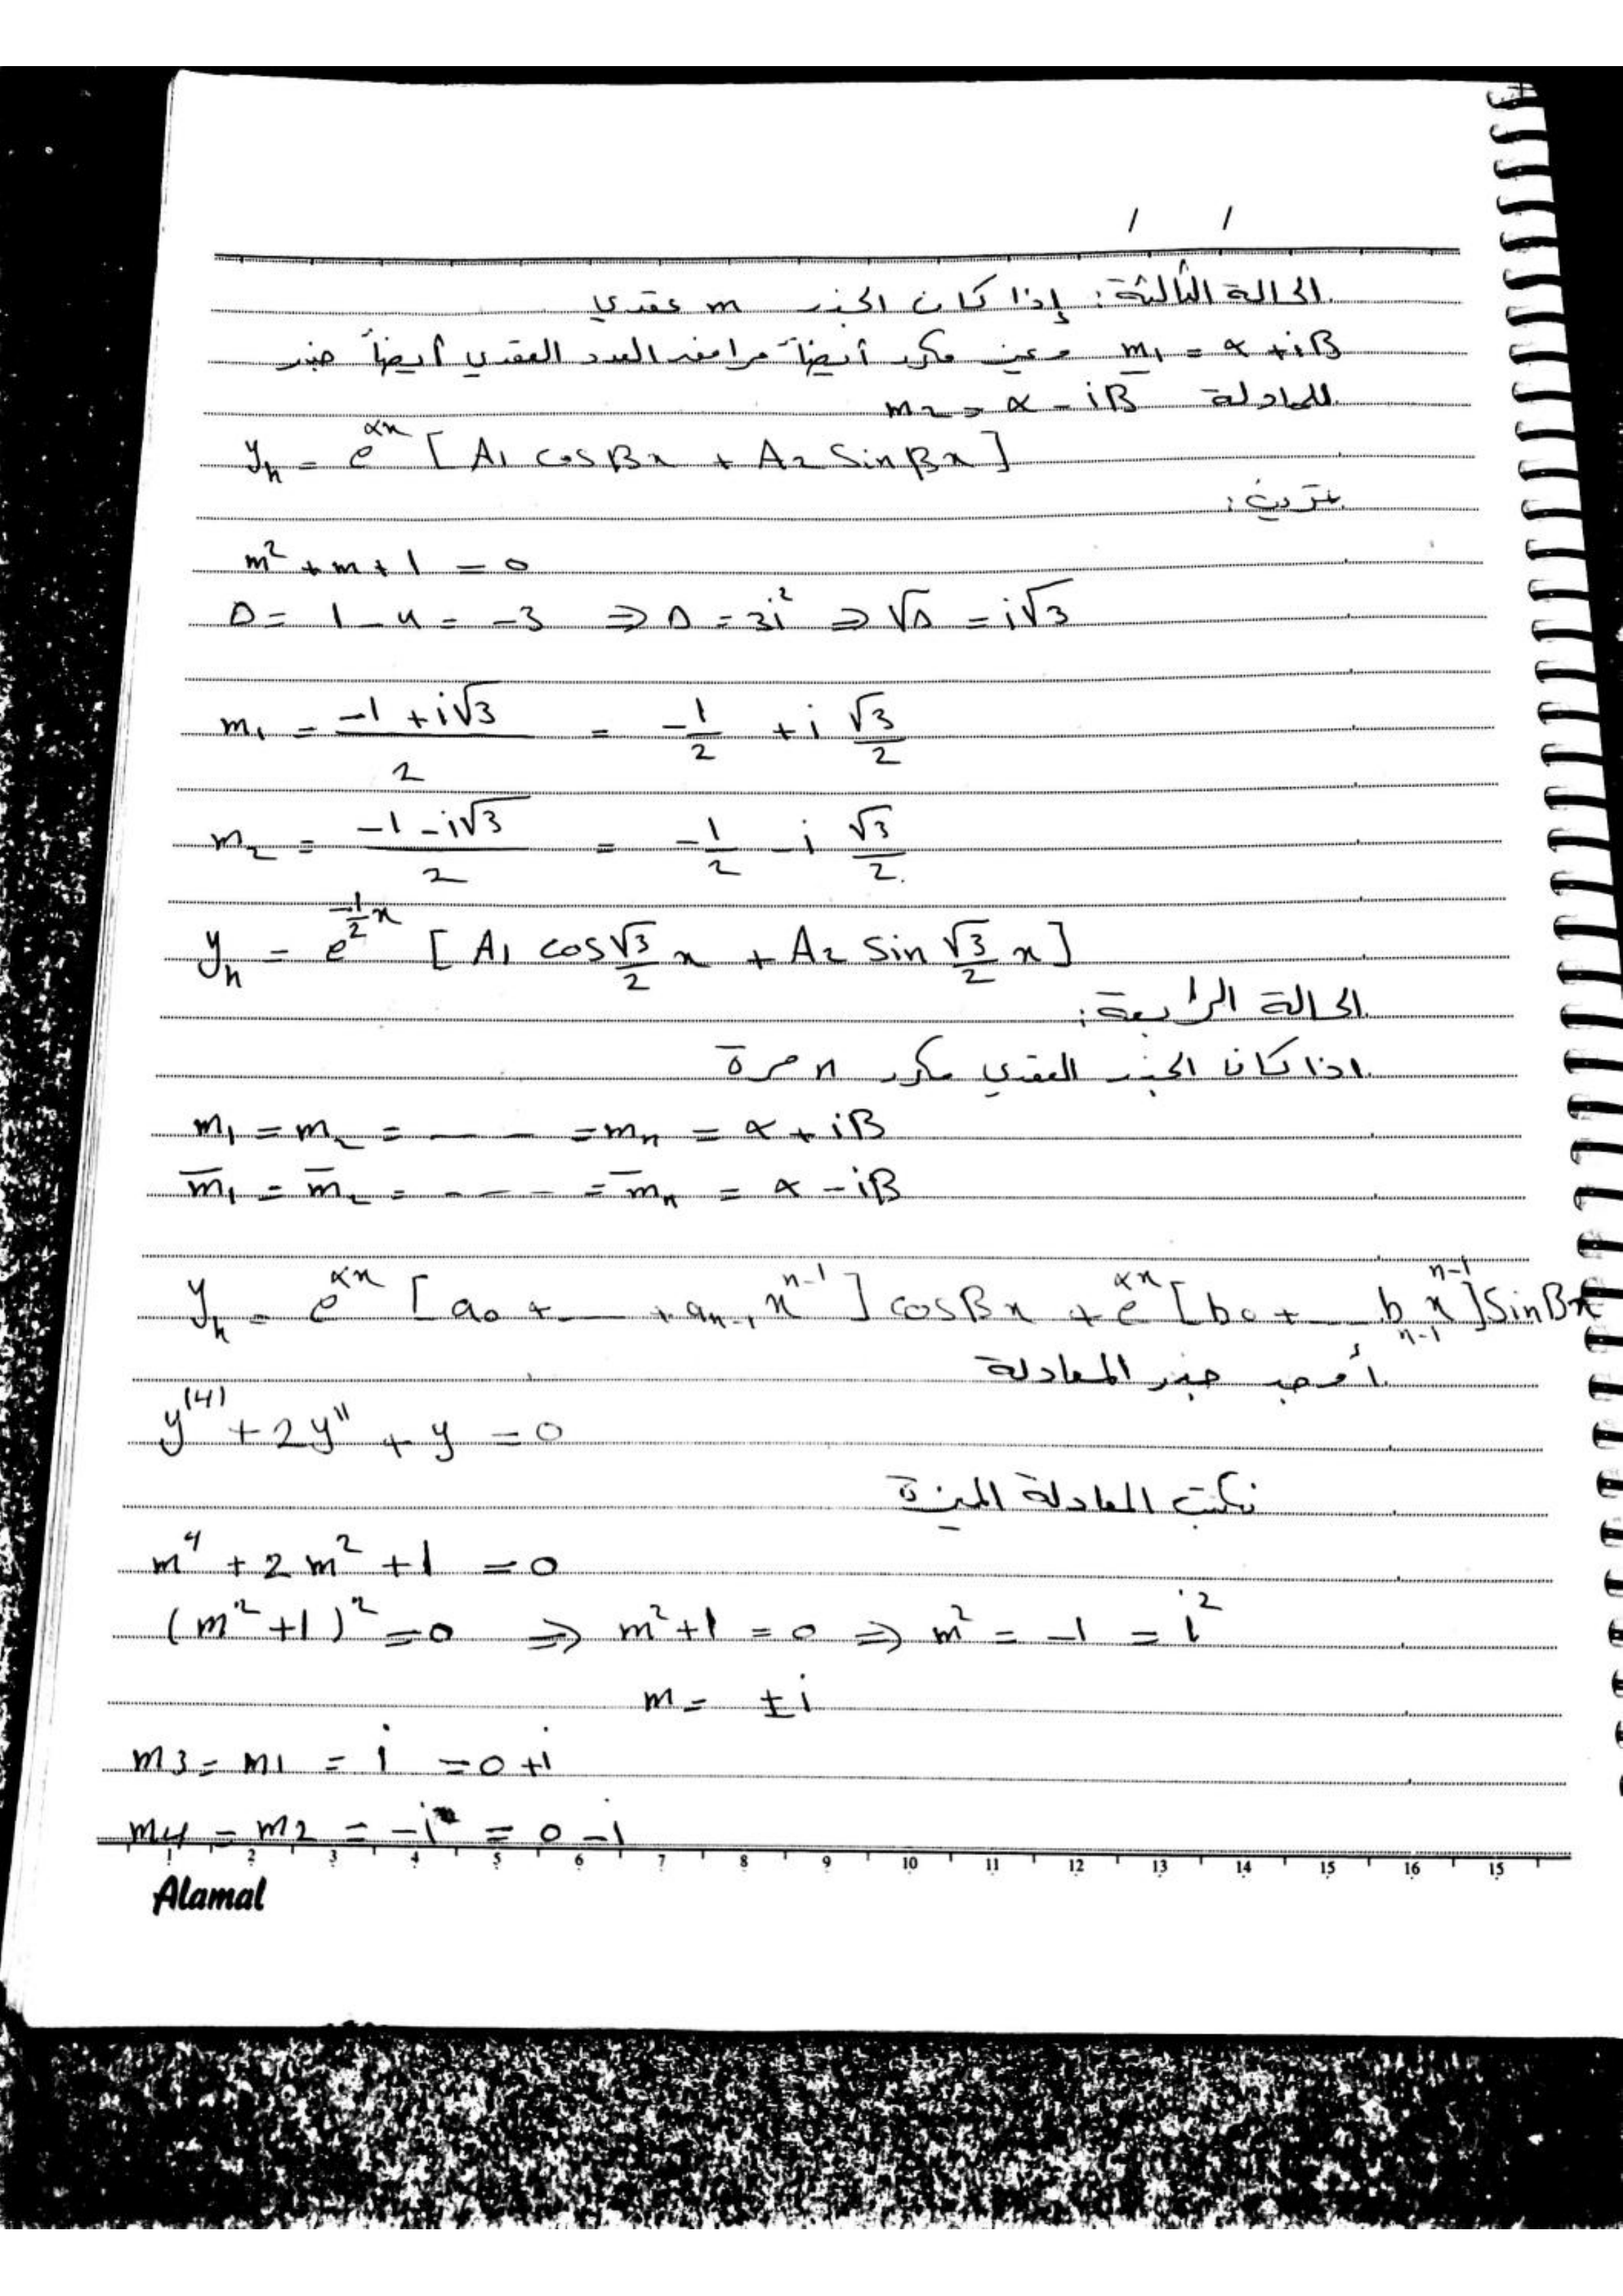 / /
الحالة الثالثة: إذا كان الجذر m عقدي
m₁ = α + iβ وغير مكرر أيضاً مرافق العدد العقدي أيضاً جذر
للمعادلة m₂ = α - iβ
yₕ = e^{αx} [A₁ cosβx + A₂ sinβx]
تمرين:
m² + m + 1 = 0
Δ = 1 - 4 = -3 ⇒ Δ = 3i² ⇒ √Δ = i√3
m₁ = (-1 + i√3)/2 = -1/2 + i √3/2
m₂ = (-1 - i√3)/2 = -1/2 - i √3/2
yₕ = e^{-1/2 x} [A₁ cos √3/2 x + A₂ sin √3/2 x]
الحالة الرابعة:
اذا كان الجذر العقدي مكرر n مرة
m₁ = m₂ = - - - = mₙ = α + iβ
m̄₁ = m̄₂ = - - - - = m̄ₙ = α - iβ
yₕ = e^{αx} [a₀ + - - - + aₙ₋₁ x^{n-1}] cosβx + e^{αx} [b₀ + - - - bₙ₋₁ x^{n-1}] sinβx
أوجد جذر المعادلة
y⁽⁴⁾ + 2y'' + y = 0
نكتب المعادلة المميزة
m⁴ + 2m² + 1 = 0
(m² + 1)² = 0 ⇒ m² + 1 = 0 ⇒ m² = -1 = i²
m = ±i
m3 = m1 = i = 0 + i
m4 = m2 = -i = 0 - i
1 2 3 4 5 6 7 8 9 10 11 12 13 14 15 16 15
Alamal